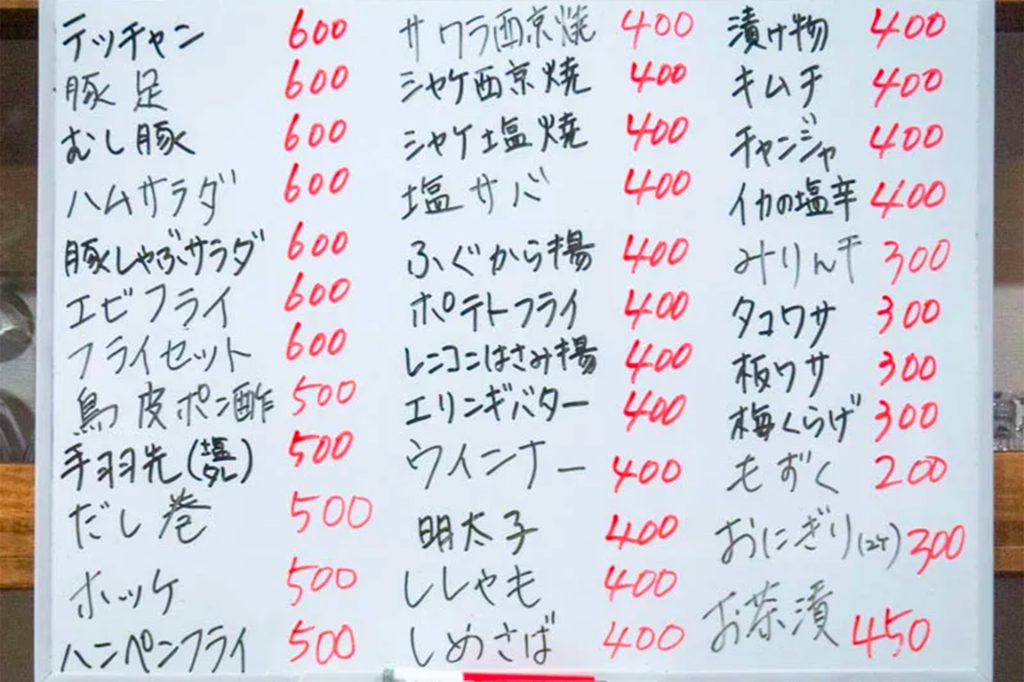 テッチャン 600
豚足 600
むし豚 600
ハムサラダ 600
豚しゃぶサラダ 600
エビフライ 600
フライセット 600
鳥皮ポン酢 500
手羽先(塩タレ) 500
だし巻 500
ホッケ 500
ハンペンフライ 500
サワラ西京焼 400
シャケ西京焼 400
シャケ塩焼 400
塩サバ 400
ふぐから揚 400
ポテトフライ 400
レンコンはさみ揚 400
エリンギバター 400
ウインナー 400
明太子 400
ししゃも 400
しめさば 400
漬け物 400
キムチ 400
チャンジャ 400
イカの塩辛 400
みりん干 300
タコワサ 300
板ワサ 300
梅くらげ 300
もずく 200
おにぎり(2ケ) 300
お茶漬 450